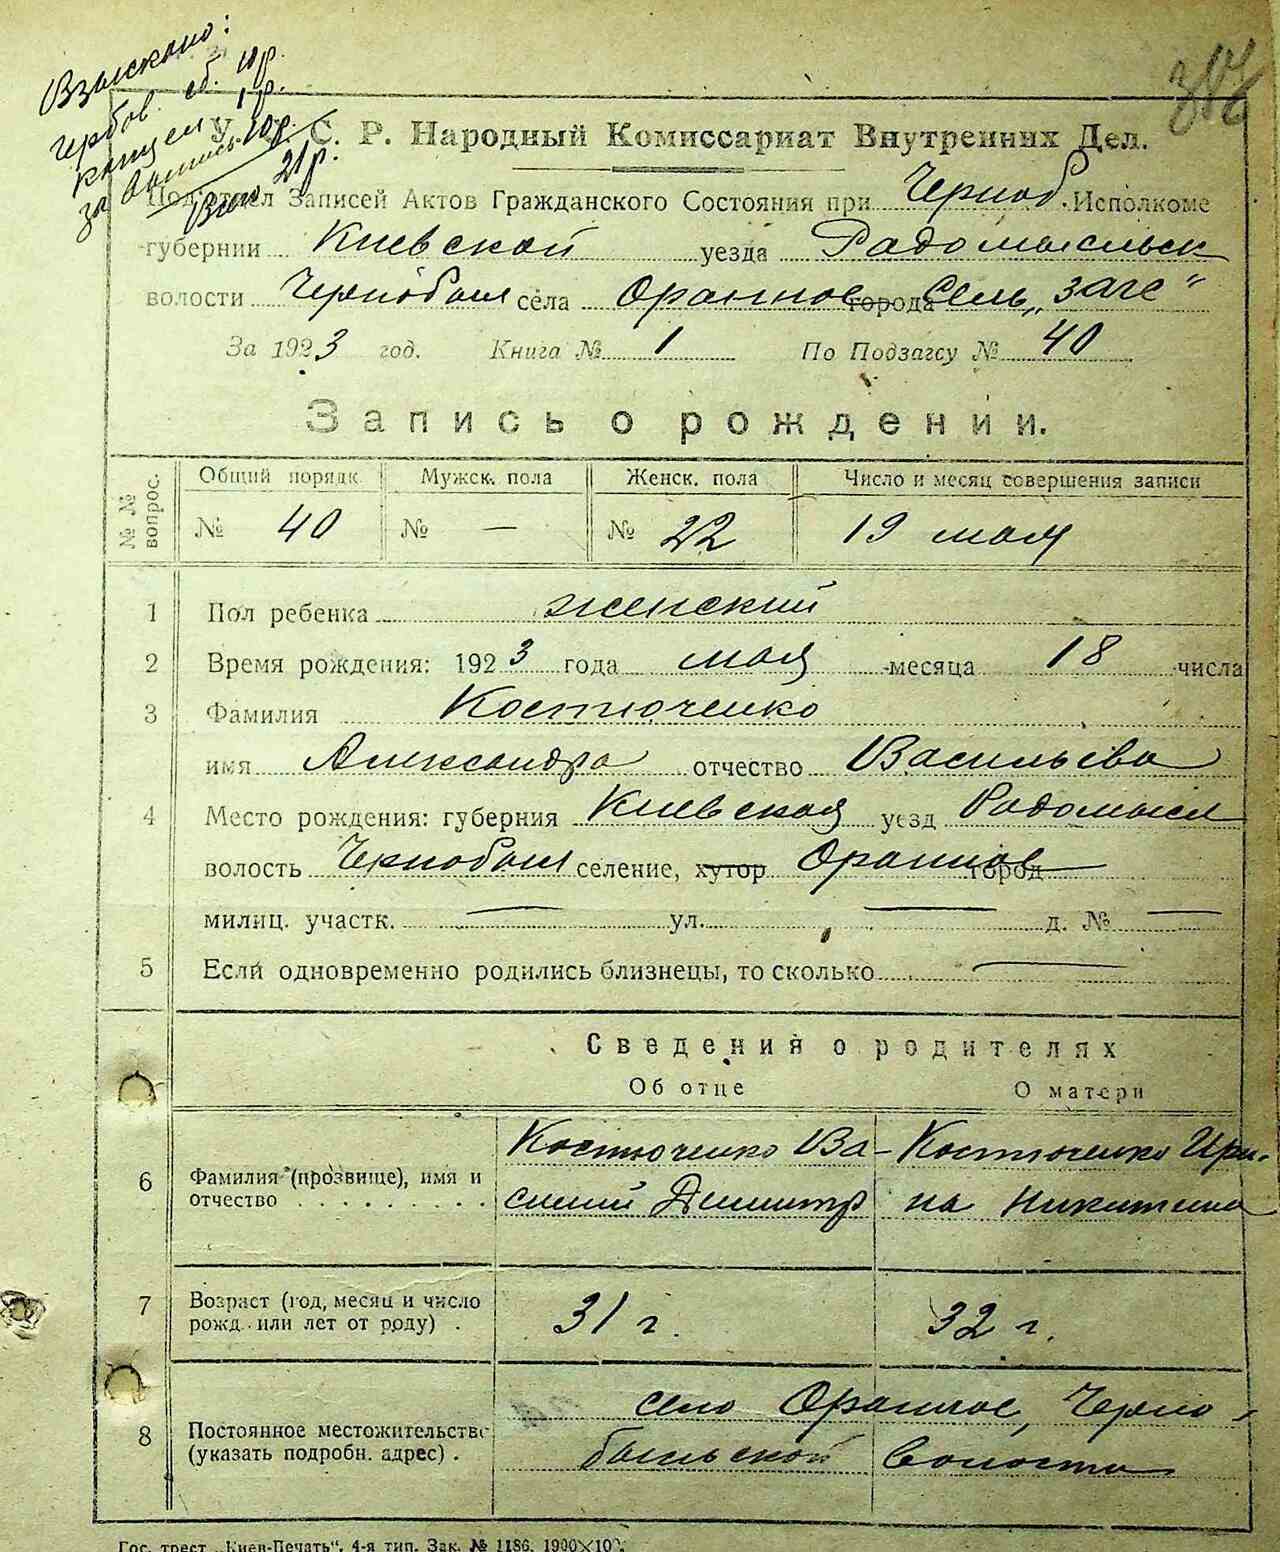 Взыскано:
гербов. сб. 10 р.
канцел 1 р.
за запись 10 р.
Всего 21 р.
У. С. С. Р. Народный Комиссариат Внутренних Дел.
Подотдел Записей Актов Гражданского Состояния при Черноб. Исполкоме
губернии Киевской уезда Радомысльск
волости Чернобыл села Оранное города Сель „загс"
За 1923 год. Книга № 1 По Подзагсу № 40
Запись о рождении.
№ № вопрос. Общий порядк. Мужск. пола Женск. пола Число и месяц совершения записи
№ 40 № — № 22 19 мая
1 Пол ребенка женский
2 Время рождения: 1923 года мая месяца 18 числа
3 Фамилия Костюченко
имя Александра отчество Васильева
4 Место рождения: губерния Киевская уезд Радомысл
волость Чернобыл селение, хутор Оранное город
милиц. участк. — ул. — д. № —
5 Если одновременно родились близнецы, то сколько —
Сведения о родителях
Об отце О матери
6 Фамилия (прозвище), имя и отчество . . . . . . . . .
Костюченко Ва-
силий Димитр
Костюченко Ири-
на Никитина
7 Возраст (год, месяц и число рожд. или лет от роду) .
31 г. 32 г.
8 Постоянное местожительство (указать подробн. адрес) .
село Оранное, Черно-
быльской волости
Гос. трест „Киев-Печать". 4-я тип. Зак. № 1186. 1900×100.